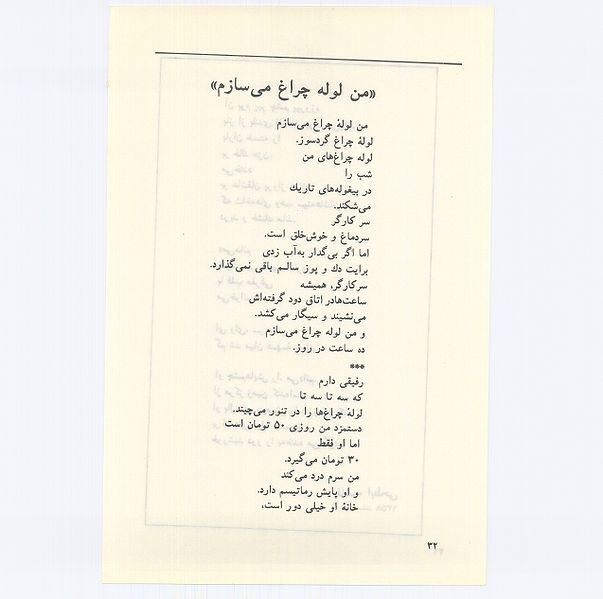 «من لوله چراغ می‌سازم»
من لولهٔ چراغ می‌سازم
لولهٔ چراغ گردسوز.
لوله چراغ‌های من
شب را
در بیغوله‌های تاریك
می‌شکند.
سر کارگر
سردماغ و خوش‌خلق است.
اما اگر بی‌گدار به‌آب زدی
برایت دك و پوز سالـم باقی نمی‌گذارد.
سرکارگر، همیشه
ساعت‌هادر اتاق دود گرفته‌اش
می‌نشیند و سیگار می‌کشد.
و من لوله چراغ می‌سازم
ده ساعت در روز.
***
رفیقی دارم
که سه تا سه تا
لولهٔ چراغ‌ها را در تنور می‌چیند.
دستمزد من روزی ۵۰ تومان است
اما او فقط
۳۰ تومان می‌گیرد.
من سرم درد می‌کند
و او پایش رماتیسم دارد.
خانهٔ او خیلی دور است،
۳۲